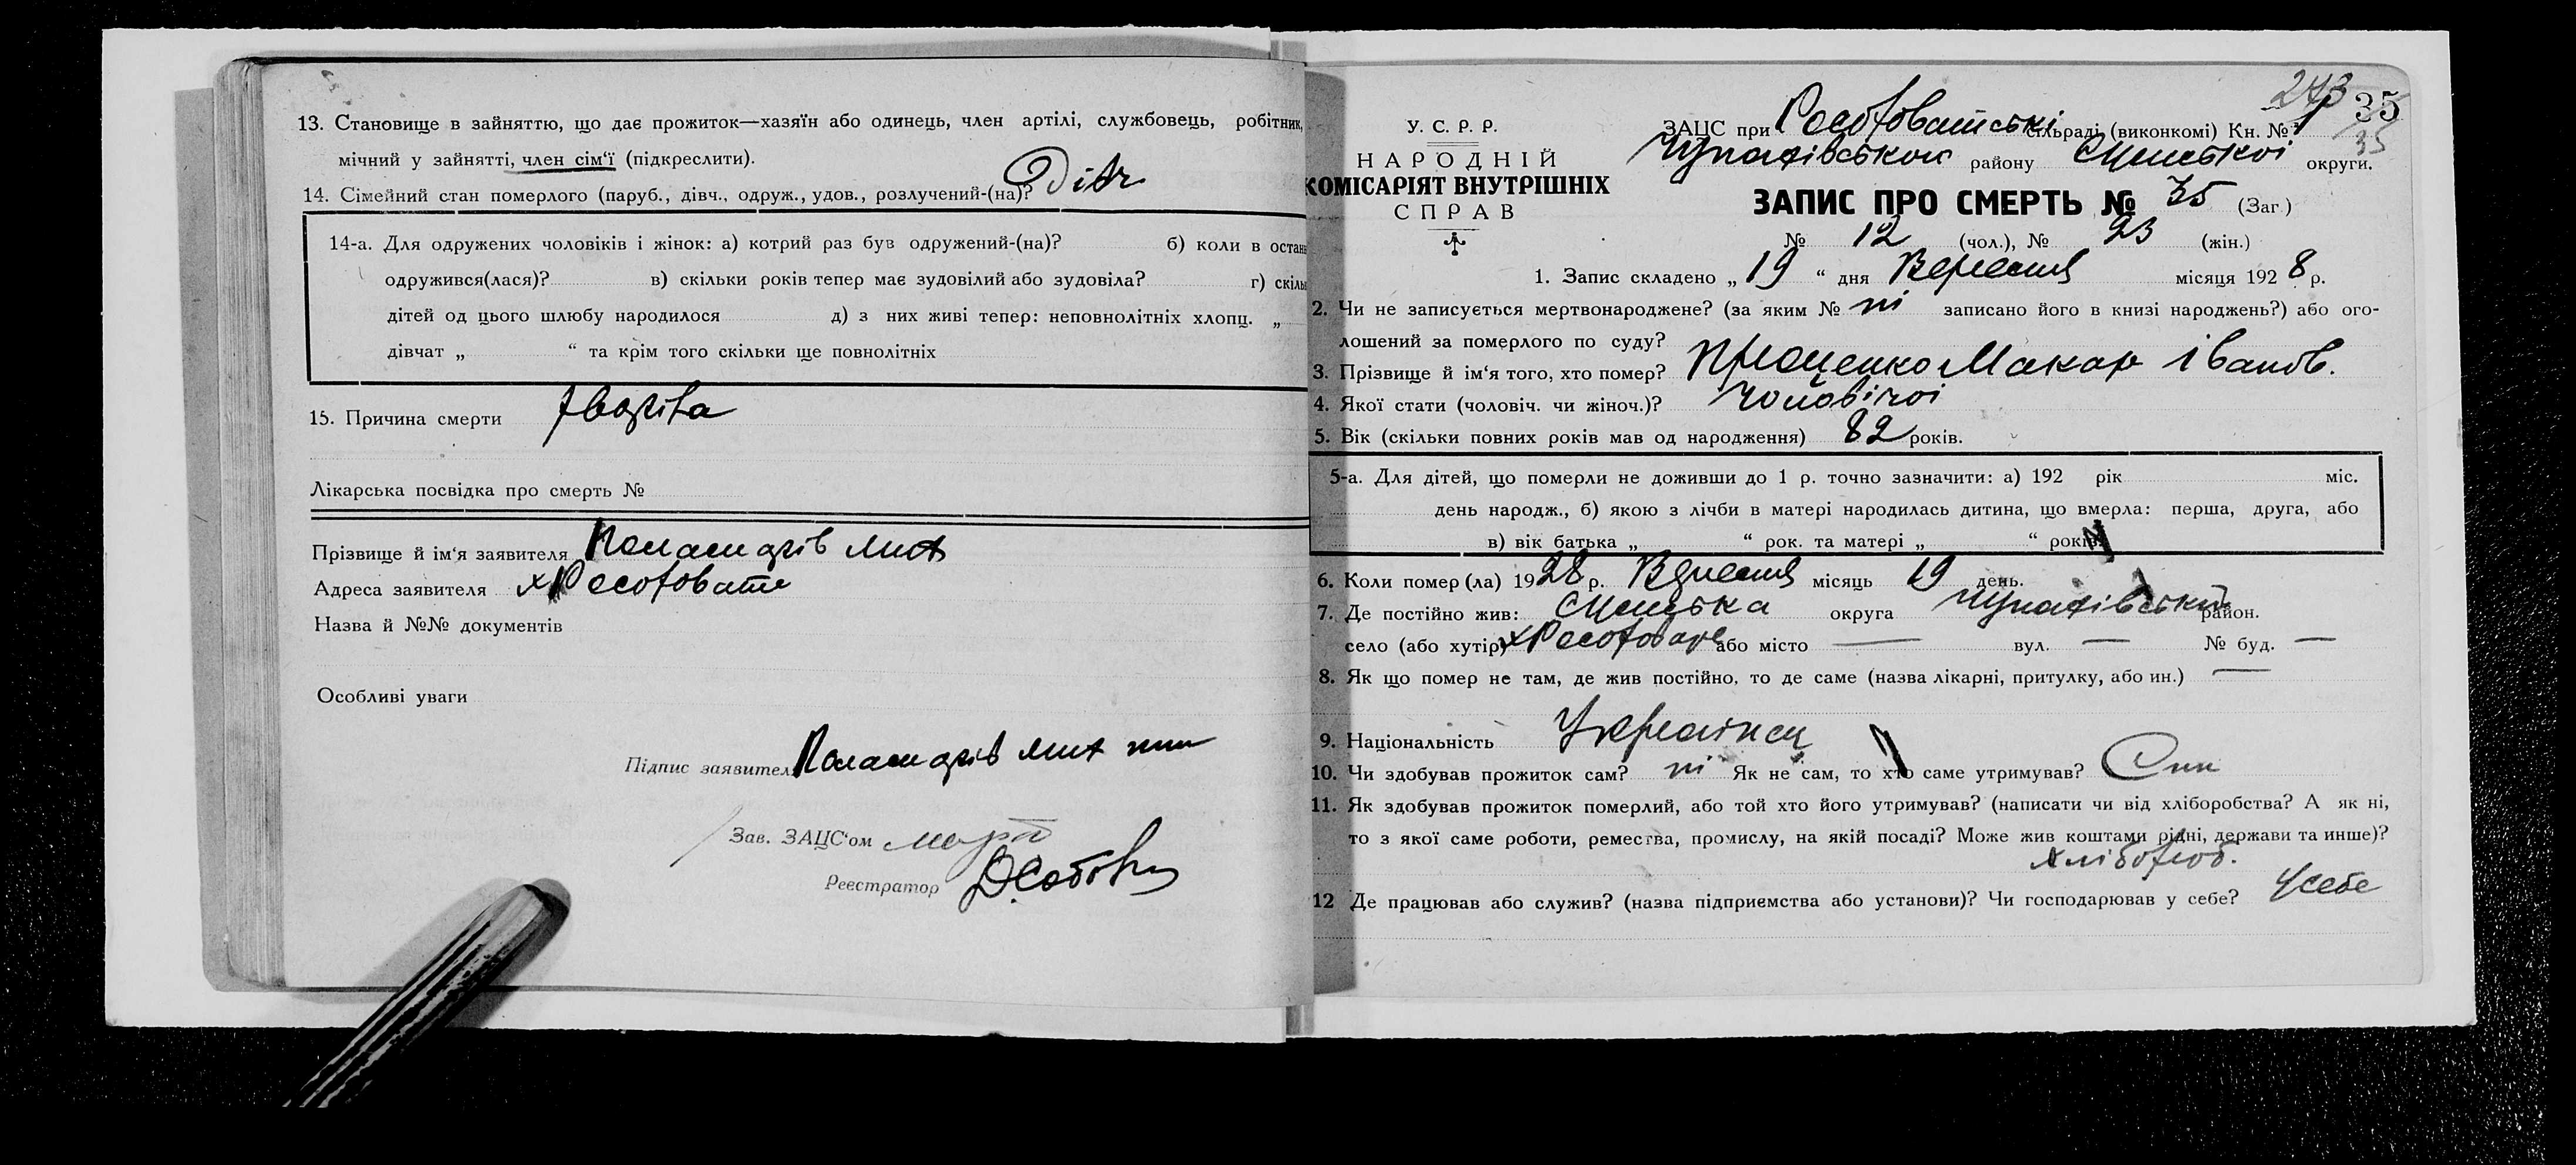 13. Становище в зайняттю, що дає прожиток—хазяїн або одинець, член артілі, службовець, робітник,
мічний у зайнятті, член сім'ї (підкреслити).
14. Сімейний стан померлого (паруб., дівч., одруж., удов., розлучений-(на)?
14-а. Для одружених чоловіків і жінок: а) котрий раз був одружений-(на)? б) коли в остан
одружився(лася)? в) скільки років тепер має зудовілий або зудовіла? г) скіль
дітей од цього шлюбу народилося д) з них живі тепер: неповнолітніх хлопц. „
дівчат „ “ та крім того скільки ще повнолітніх
15. Причина смерти
Лікарська посвідка про смерть №
Прізвище й ім'я заявителя
Адреса заявителя
Назва й №№ документів
Особливі уваги
Підпис заявител
Зав. ЗАЦС'ом
Реєстратор
273
35
35
У. С. Р. Р.
НАРОДНІЙ
КОМІСАРІЯТ ВНУТРІШНІХ
СПРАВ
ЗАЦС при сільраді (виконкомі) Кн. № 1
району округи.
ЗАПИС ПРО СМЕРТЬ № 35 (Заг.)
№ 12 (чол.), № 23 (жін.)
1. Запис складено „ 19 “ дня Вересня місяця 192 8 р.
2. Чи не записується мертвонароджене? (за яким № ні записано його в книзі народжень?) або ого-
лошений за померлого по суду?
3. Прізвище й ім'я того, хто помер? Проценко Макар Іванов.
4. Якої стати (чоловіч. чи жіноч.)? Чоловічої
5. Вік (скільки повних років мав од народження) 82 років.
5-а. Для дітей, що померли не доживши до 1 р. точно зазначити: а) 192 рік міс.
день народж., б) якою з лічби в матері народилась дитина, що вмерла: перша, друга, або
в) вік батька „ “ рок. та матері „ “ років.
6. Коли помер (ла) 1928 р. Вересня місяць 19 день.
7. Де постійно жив: округа район.
село (або хутір) або місто — вул. — № буд. —
8. Як що помер не там, де жив постійно, то де саме (назва лікарні, притулку, або ин.) —
9. Національність Українец
10. Чи здобував прожиток сам? ні Як не сам, то хто саме утримував? Син
11. Як здобував прожиток померлий, або той хто його утримував? (написати чи від хліборобства? А як ні,
то з якої саме роботи, ремества, промислу, на якій посаді? Може жив коштами рідні, держави та инше)?
хлібороб.
12 Де працював або служив? (назва підприємства або установи)? Чи господарював у себе? У себе